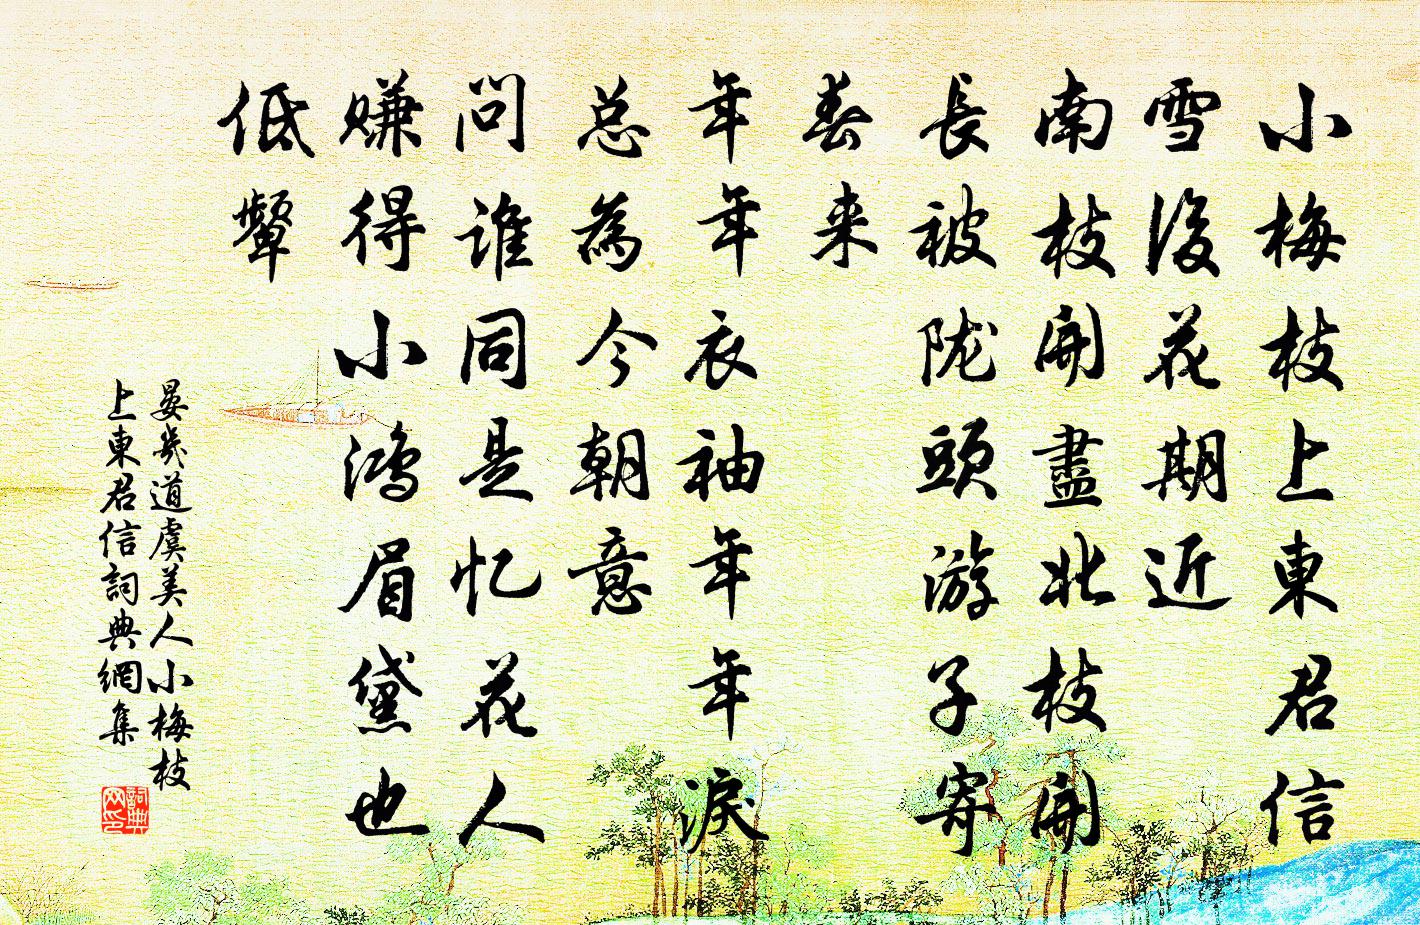 小梅枝上東君信
雪後花期近
南枝開盡北枝開
長被陇頭游子寄
春来
年年衣袖年年淚
总為今朝意
问谁同是忆花人
赚得小鸿眉黛也
低颦
晏幾道虞美人小梅枝
上東君信詞典網集
詞典
网印